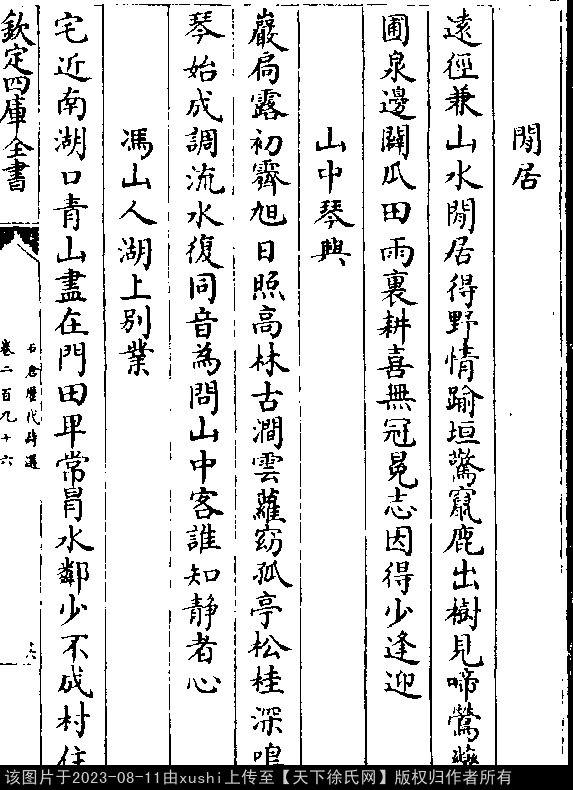 閒居
遠徑兼山水閒居得野情踰垣驚竄鹿出樹見啼鶯藥
圃泉邊闢瓜田雨裏耕喜無冠冕志因得少逢迎
山中琴興
巖扃露初霽旭日照高林古澗雲蘿窈孤亭松桂深鳴
琴始成調流水復同音為問山中客誰知静者心
馮山人湖上別業
宅近南湖口青山盡在門田卑常冐水鄰少不成村住
欽定四庫全書
石倉歷代詩選
卷二百九十六
十六
该图片于2023-08-11由xushi上传至【天下徐氏网】版权归作者所有